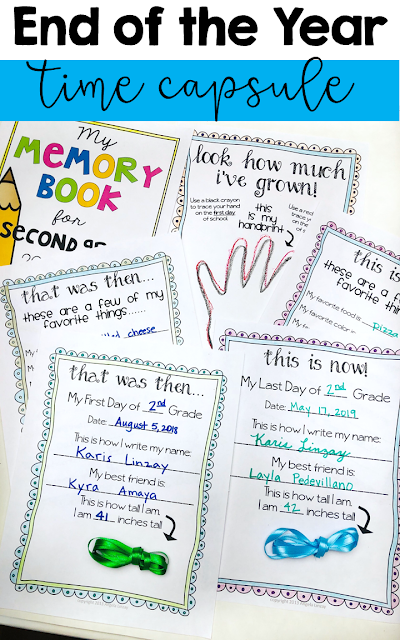 End of the Year
time capsule
My
MEMORY
BOOK
for
SECOND
look how much
i've grown!
Use a black crayon
to trace your hand
on the first day
of school.
this
is my
handprint
Use a red
trace
on the
that was then...
these are a few of my
favorite things......
cheese
this is
these are a
favorite
My favorite food is pizza
My favorite color
that was then...
My First Day of 2nd Grade
Date: August 5, 2018
This is how I write my name:
Karis Linzay
My best friend is:
Kyra Amaya
This is how tall I am.
I am 41 inches tall
this is now!
My Last Day of 2nd Grade
Date: May 17, 2019
This is how I write my name:
Karis Linzay
My best friend is:
Layla Pedevillano
This is how tall I am.
I am 42 inches tall